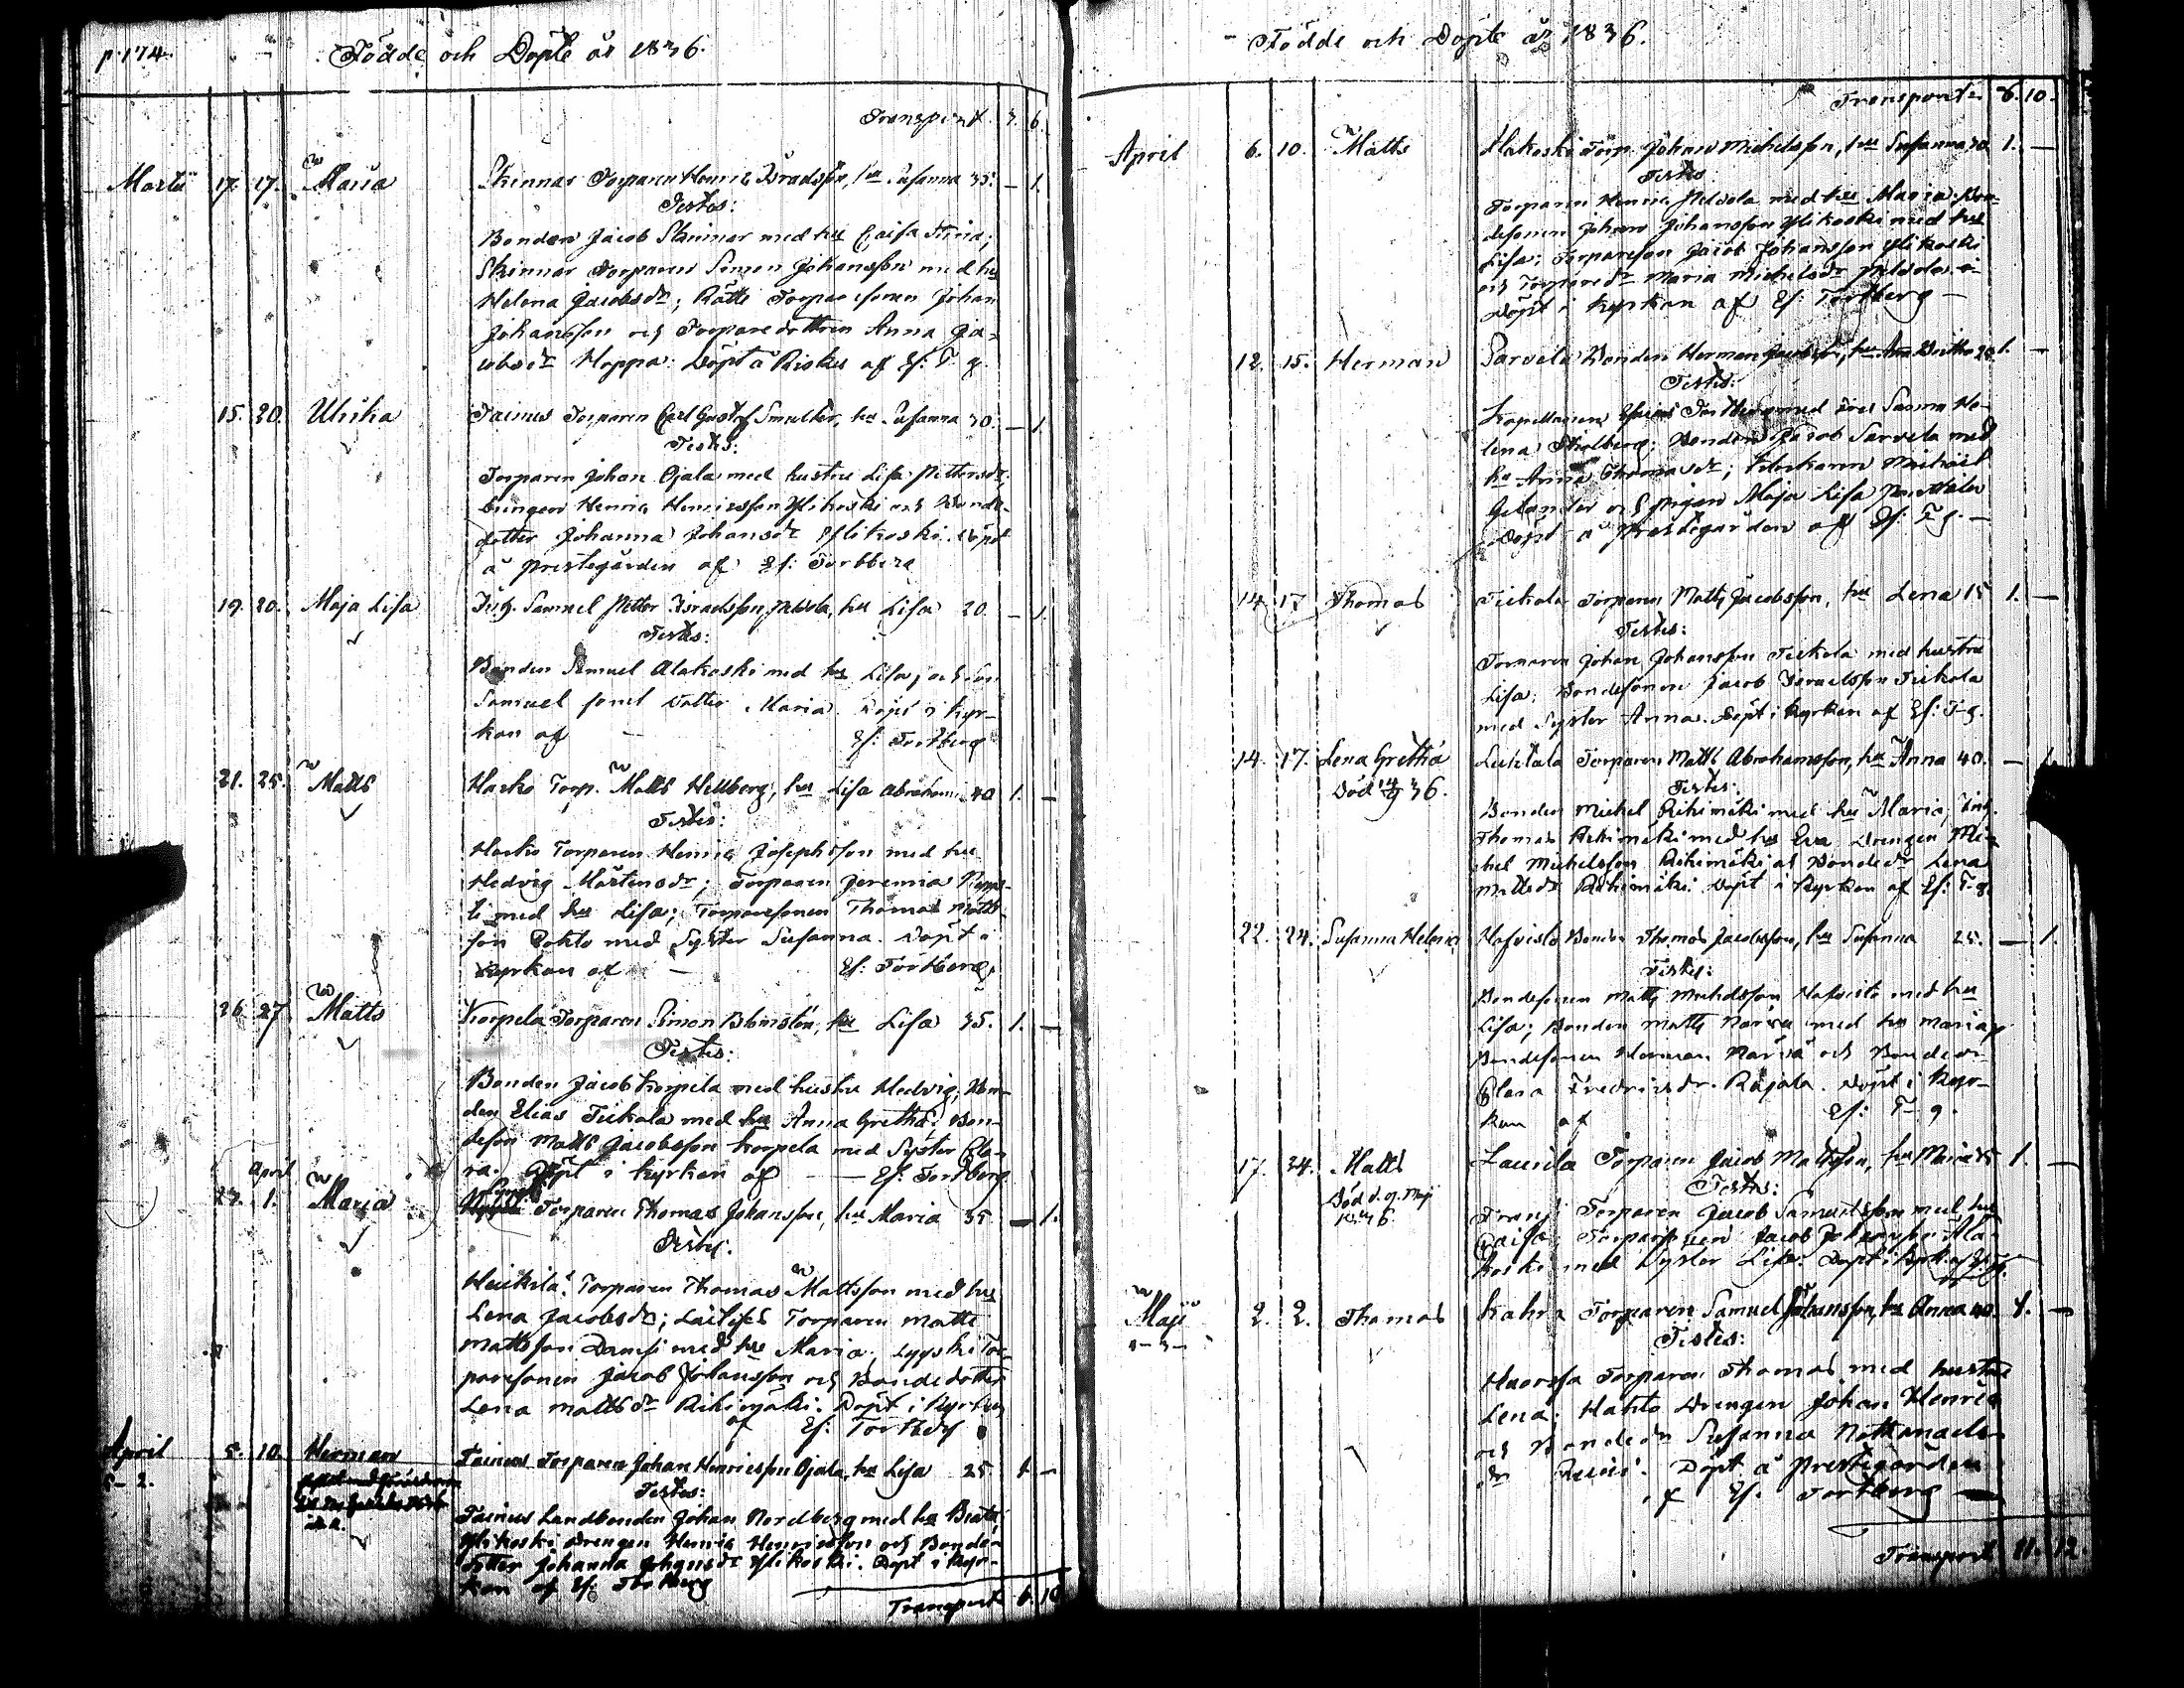 p. 174.
Födde och Döpte år 1836.
Transport 3. 6.
Martii 17. 17. Maria Skinnar Torparen Henric Israelsson, hu Susanna 35. — 1.
Testes:
Bonden Jacob Skinnar med hu Caisa Stina;
Skinnar Torparen Simon Johansson med hu
Helena Jacobsdr; Rätti Torparesonen Johan
Johansson och Torparedottren Anna Ja-
cobsdr Hoppa. Döpt å Riskus af Es: T. g.
15. 20. Ulrika Tainus Torparen Carl Gustaf Smulter, hu Susanna 30. — 1.
Testes:
Torparen Johan Ojala med hustru Lisa Pettersdr;
Drengen Henric Henricsson Ylikoski och Bonde-
dotter Johanna Johansdr Ylikoski. Döpt
å prestegården af Es: Tortberg
19. 20. Maja Lisa Inh. Samuel Petter Israelsson, hu Lisa 20. — 1.
Testes:
Bonden Samuel Alakoski med hu Lisa, och son
Samuel samt dotter Maria. Döpt i Kyr-
kan af — Es: Tortberg
21. 25. Matts Harko Torp. Matts Hellberg, hu Lisa Abrahams 40 1. —
Testes:
Harko Torparen Henric Josephsson med hu
Hedvig Mårtensdr; Torparen Jeremia
med hu Lisa; Torparesonen Thomas Matts-
son Pohto med Syster Susanna. Döpt i
Kyrkan af — Es: Tortberg
26. 27 Matts Korpela Torparen Simon Blomsten, hu Lisa 35. 1. —
Testes:
Bonden Jacob Korpela med hustru Hedvig, Bon-
den Elias Tiekala med hu Anna Gretha; Bon-
deson Matts Jacobsson Korpela med Syster Cla-
ra. Döpt i kyrkan af — Es: Tortberg
April
27. 1. Maria Torparen Thomas Johansson, hu Maria 35 — 1.
Testes:
Heikilä Torparen Thomas Mattsson med hu
Lena Jacobsdr; Torparen Matts
Mattsson med hu Maria; Lyyski Tor-
paresonen Jacob Johansson och Bondedotter
Lena Mattsdr Rihimäki. Döpt i Kyrkan
af Es: Tortberg
April 5. 10. Herman Tainus Torparen Johan Henricsson Ojala, hu Lisa 25 1. —
5-2.
Testes:
Tainus Landbonden Johan Nordberg med hu Beata;
Ylikoski Drengen Henric Henricsson och Bonde-
dotter Johanna Johansdr Ylikoski. Döpt i Kyr-
kan af Es: Tortberg
Transport 6. 10
Födde och Döpte år 1836.
Transport 6. 10.
April 6. 10. Matts Alakoski Torp. Johan Michelsson, hu Susanna 30 1. —
Testes
Torparen Henric Pelvola med hu Maria; Bon-
desonen Johan Johansson Ylikoski med hu
Lisa; Torpareson Jacob Johansson Ylikoski
och Torparedr Maria Michelsdr Pelvola.
Döpt i Kyrkan af Es: Tortberg —
12. 15. Herman Sarvela Bonden Herman Jacobson, hu Ann Britha 20 1. —
Testes:
Kapellanen Esaias Tortberg med Sanna He-
lena Stolberg; Bonden Jacob Sarvela med
hu Anna Thomasdr; Michael
Gelander och pigan Maja Lisa
Döpt å Prestegården af Es: T-g. —
14 17 Thomas Tiekala Torparen Matts Jacobsson, hu Lena 15 1. —
Testes:
Torparen Johan Johansson Tiekala med hustru
Lisa; Bondesonen Jacob Israelsson Tiekala
med Syster Anna. Döpt i kyrkan af Es: T-g.
14. 17. Lena Gretha Luhtala Torparen Matts Abrahamsson, hu Anna 40. — 1.
Död 14/9 36.
Testes:
Bonden Michel Rihimäki med hu Maria; Inh.
Thomas Rihimäki med hu Eva Drengen Mi-
chel Michelsson Rihimäki och Bondedr Lena
Mattsdr Rihimäki. Döpt i Kyrkan af Es: T-g.
22. 24. Susanna Helena Hafvisto Bonden Thomas Jacobsson, hu Susanna 25. — 1.
Testes:
Bondesonen Matts Michelsson Hafvisto med hu
Lisa; Bonden Matts Närvä med hu Maria;
Bondesonen Herman Närvä och Bondedr
Clara Fredricsdr Rajala. Döpt i Kyr-
kan af Es: T-g.
17. 24. Matts Laurila Torparen Jacob Mattsson, hu Maria 1. —
Död d. 9. Maj
1836.
Testes:
Frans Torparen Jacob Samuelsson med hu
Caisa; Torparesonen Jacob Johansson Ala-
koski med Syster Lisa. Döpt i kyrk. af Es: T-g.
Maji 2. 2. Thomas Kahra Torparen Samuel Johansson, hu Anna 40. 1. —
Testes:
Torparen Thomas med hustru
Lena; Hahto Drengen Johan Henric
och Bondedr Susanna
Döpt å prestegården
af Es. Tortberg —
Transport 11. 12.